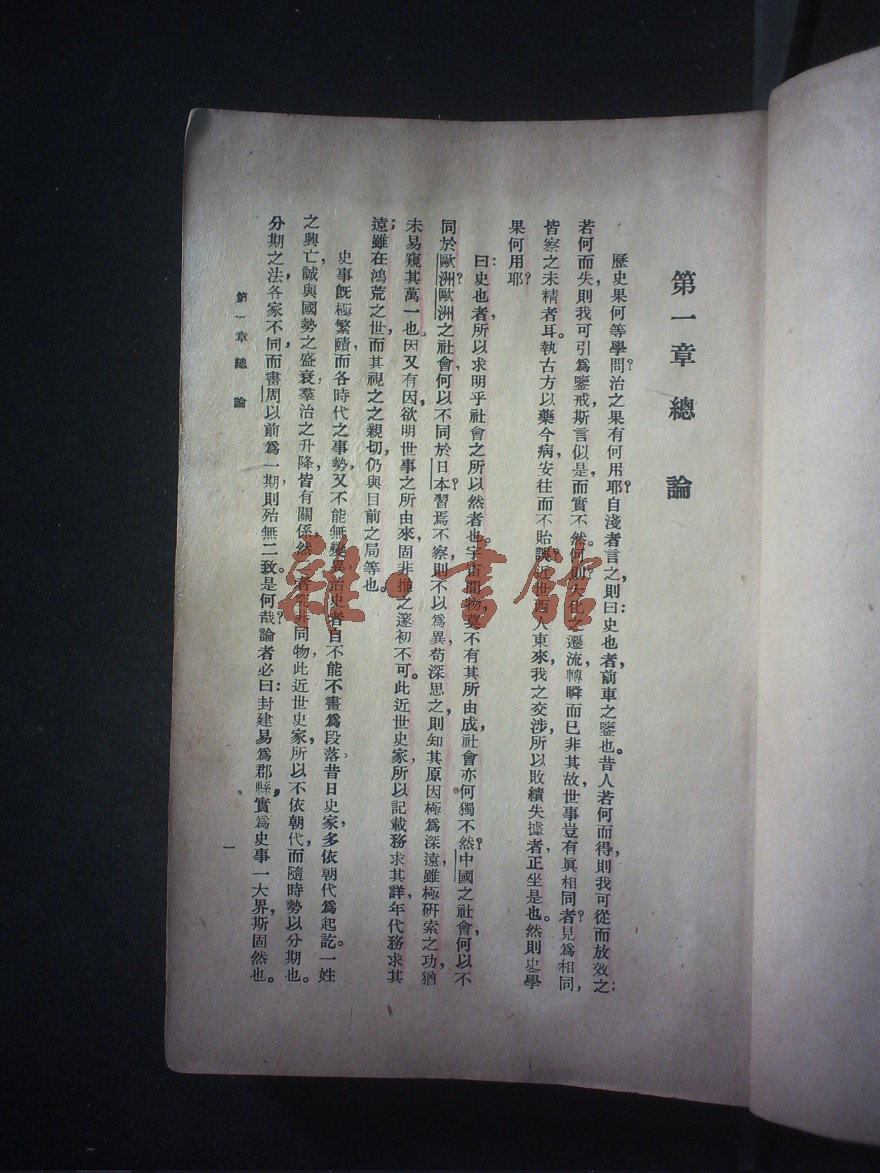 第一章 總論
歷史果何等學問?治之果有何用耶?自淺者言之,則曰:史也者,前車之鑒也。昔人若何而得,則我可從而放效之;
若何而失,則我可引爲鑒戒,斯言似是,而實不然。何則?大化之遷流,轉瞬而已非其故,世事豈有眞相同者?見爲相同,
皆察之未精者耳。執古方以藥今病,安往而不貽誤?近世西人東來,我之交涉,所以敗績失據者,正坐是也。然則史學
果何用耶?
曰:史也者,所以求明乎社會之所以然者也。宇宙間物,莫不有其所由成,社會亦何獨不然?中國之社會,何以不
同於歐洲?歐洲之社會,何以不同於日本?習焉不察,則不以爲異,苟深思之,則知其原因極爲深遠,雖極研索之功,猶
未易窺其萬一也。因又有因,欲明世事之所由來,固非推之邃初不可。此近世史家,所以記載務求其詳,年代務求其
遠;雖在鴻荒之世,而其視之之親切,仍與目前之局等也。
史事旣極繁賾,而各時代之事勢,又不能無變異,治史者自不能不畫爲段落。昔日史家,多依朝代爲起訖。一姓
之興亡,誠與國勢之盛衰,羣治之升降,皆有關係,然二者究非同物,此近世史家,所以不依朝代,而隨時勢以分期也。
分期之法,各家不同,而畫周以前爲一期,則殆無二致。是何哉?論者必曰:封建易爲郡縣,實爲史事一大界,斯固然也。
第一章 總論
一
雜·書館